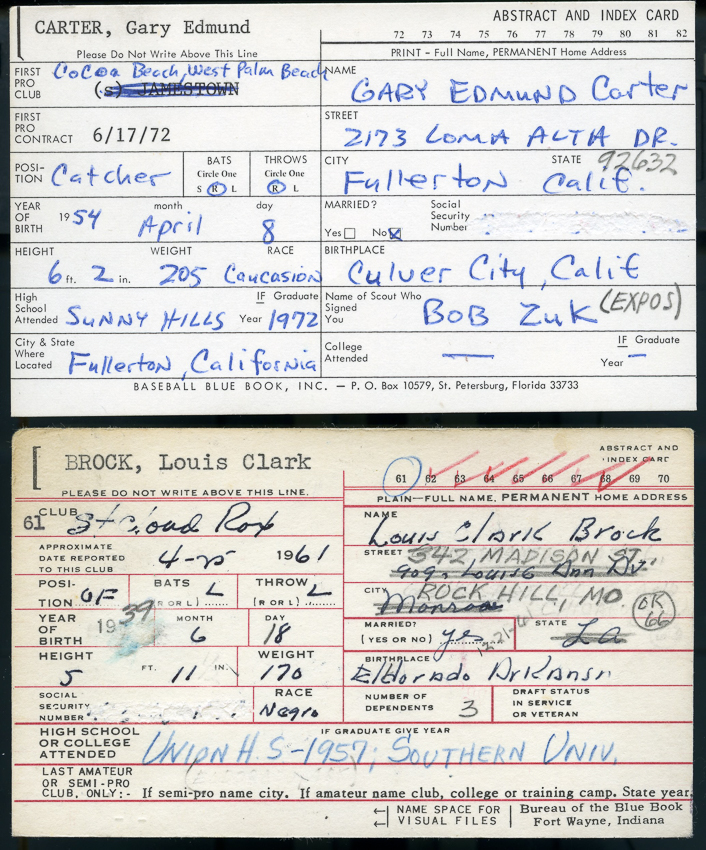 CARTER, Gary Edmund
ABSTRACT AND INDEX CARD
72 73 74 75 76 77 78 79 80 81 82
Please Do Not Write Above This Line
PRINT – Full Name, PERMANENT Home Address
FIRST PRO CLUB Cocoa Beach, West Palm Beach
(s) JAMESTOWN
NAME GARY EDMUND Carter
FIRST PRO CONTRACT 6/17/72
STREET 2173 LOMA ALTA DR.
POSI- TION Catcher
BATS Circle One S R L
THROWS Circle One R L
CITY Fullerton STATE Calif. 92632
YEAR OF BIRTH 1954 month April day 8
MARRIED? Yes No
Social Security Number
HEIGHT 6 ft. 2 in. WEIGHT 205 RACE Caucasion
BIRTHPLACE Culver City, Calif
High School Attended SUNNY HILLS IF Graduate Year 1972
Name of Scout Who Signed You BOB ZUK (EXPOS)
City & State Where Located Fullerton, California
College Attended — IF Graduate Year —
BASEBALL BLUE BOOK, INC. — P. O. Box 10579, St. Petersburg, Florida 33733
BROCK, Louis Clark
ABSTRACT AND INDEX CARD
61 62 63 64 65 66 67 68 69 70
PLEASE DO NOT WRITE ABOVE THIS LINE.
PLAIN—FULL NAME, PERMANENT HOME ADDRESS
61 CLUB St Cloud Rox
NAME Louis Clark Brock
APPROXIMATE DATE REPORTED TO THIS CLUB 4-25 1961
STREET 342 MADISON ST.
909 Louise Ann Dr.
POSI- TION OF
BATS (R OR L) L
THROW (R OR L) L
CITY ROCK HILL, MO.
Monroe
OK 66
YEAR OF BIRTH 1939 MONTH 6 DAY 18
MARRIED? (YES OR NO) yes
STATE La
HEIGHT 5 FT. 11 IN. WEIGHT 170
BIRTHPLACE Eldorado Arkansas
SOCIAL SECURITY NUMBER
RACE Negro
NUMBER OF DEPENDENTS 3
DRAFT STATUS IN SERVICE OR VETERAN
HIGH SCHOOL OR COLLEGE ATTENDED
IF GRADUATE GIVE YEAR
UNION H.S-1957; SOUTHERN UNIV.
LAST AMATEUR OR SEMI-PRO CLUB, ONLY:- If semi-pro name city. If amateur name club, college or training camp. State year.
NAME SPACE FOR VISUAL FILES
Bureau of the Blue Book
Fort Wayne, Indiana